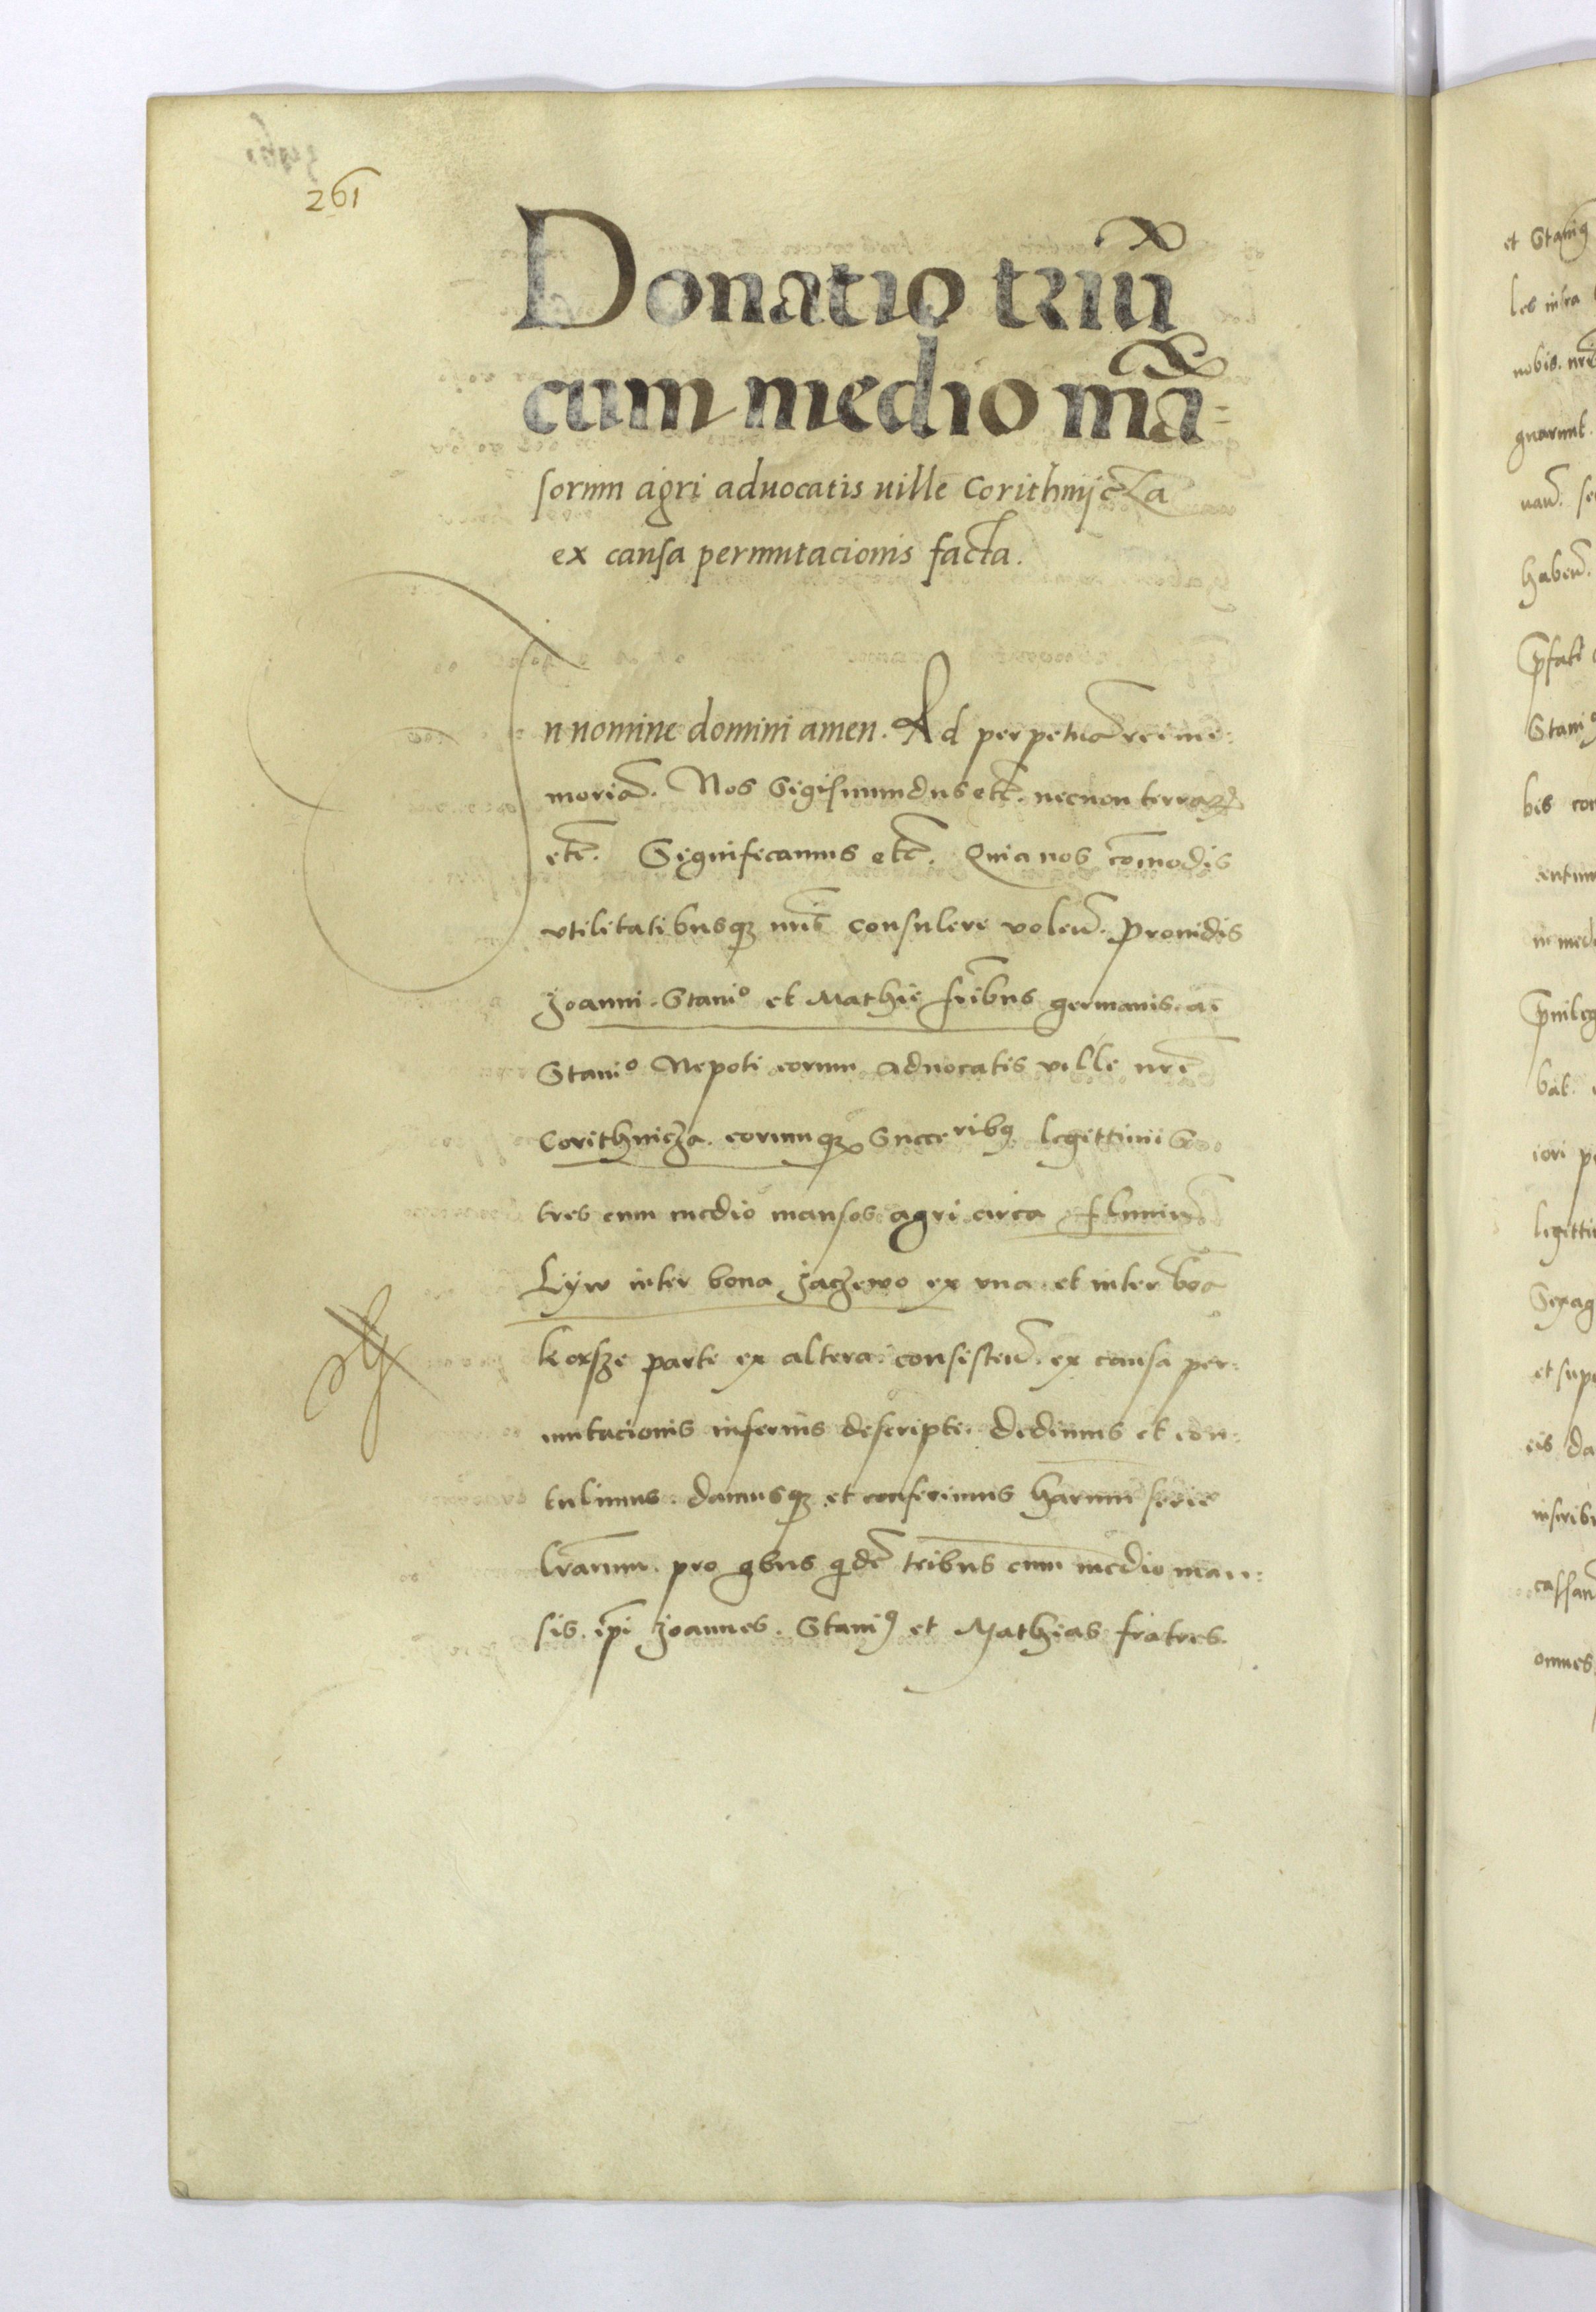 261
Donatio triū
cum medio mā=
sorum agri aduocatis uille Corithnycza
ex causa permutacionis facta.
In nomine domini amen. Ad perpetuā rei me:
moriā. Nos Sigismundus etc̄. necnon terrarꝝ
etc̄. Significamus etc̄. Quia nos cōmodis
vtilitatibusqꝫ nr̄is consulere volen̄. prouidis
Joanni. Staniº et Mathie fr̄ibus germanis. ac̄
Staniº Nepoti eorum aduocatis ville nr̄e
Corithnicza. eorumqꝫ Succeribꝯ legittimis
tres cum medio mansos agri circa fluuiū
Lyw inter bona Jaczewo ex vna. et inter bōa
korsze parte ex altera. consisten̄. ex causa per:
mutacionis inferius descripte. dedimus et con:
tulimus. damusqꝫ et conferimus harum serie
lr̄arum. pro qbus qͥdē tribus cum medio man:
sis. ip̄i Joannes. Staniꝯ et Mathias fratres.
et Staniꝯ
les infra
nobis. nre
gnarunt.
nan̄. se
haben̄.
p̄fati
Staniꝯ
bis con
in med
p̄uileg
bat.
iori p
legitti
Sexag
et supe
eis da
inscrib
cassan
omnes